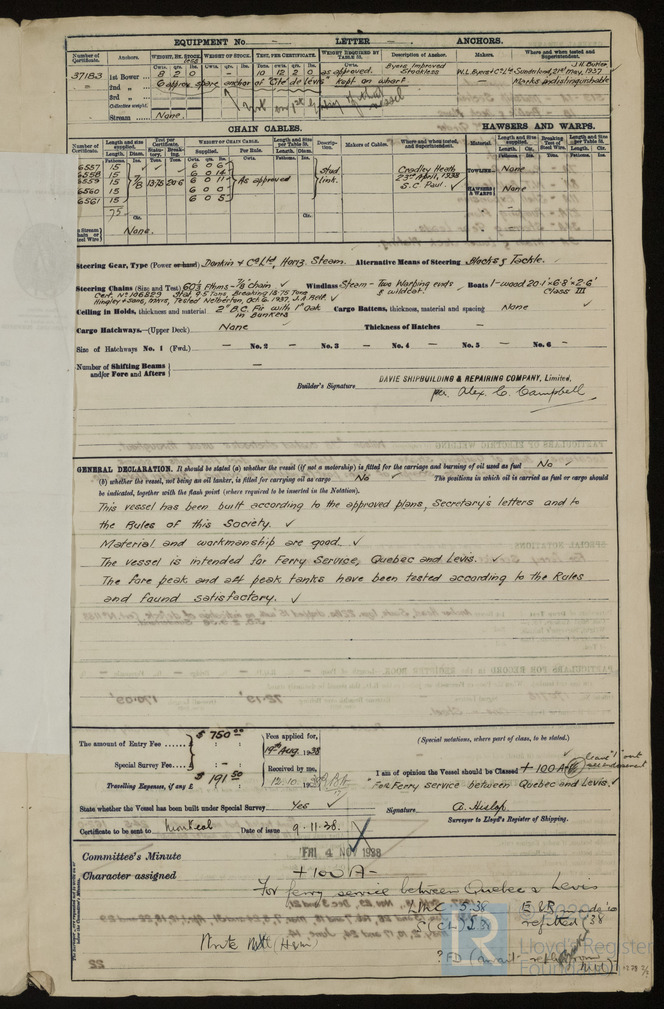 EQUIPMENT No. LETTER ANCHORS.
Number of Certificate. Anchors. WEIGHT, EX. STOCK. WEIGHT OF STOCK. TEST, PER CERTIFICATE. WEIGHT REQUIRED BY TABLE 53. Description of Anchor. Makers. Where and when tested and Superintendent.
37183 1st Bower 8 2 0 – 10 12 2 0 as approved. Byers Improved Stockless W.L. Byers & Co Ltd Sunderland, 21st May, 1937 J.H. Butler
2nd „ 6 approx. spare anchor of "Cité de Lévis" kept on wharf Marks indistinguishable
3rd „
Collective weight.
Stream None.
CHAIN CABLES. HAWSERS AND WARPS.
Number of Certificate. Length and size supplied. Test per Certificate. WEIGHT OF CHAIN CABLE. Length and Size per Table 53. Description. Makers of Cables. Where and when tested, and Superintendent. Material. Length and size supplied. Breaking Test of Steel Wire. Length and size per Table 53.
6557 15 6 0 6
6558 15 6 0 14
6559 15 7/8 13.75 20.6 6 0 11 As approved Stud link. Cradley Heath 23rd April, 1938 S.C. Paul. ✓ TOWLINE None
6560 15 6 0 0 HAWSERS & WARPS None
6561 15 6 0 5
75
None.
Steering Gear, Type (Power or hand) Donkin & Co Ltd, Horiz. Steam. Alternative Means of Steering Blocks & Tackle.
Steering Chains (Size and Test) 60½ Fthms – 7/8" chain ✓ Windlass Steam – Two Warping ends & wildcat. Boats 1 – wood 20.1' × 6.8' × 2.6' Class III
Cert. No 106829 Stat. 9.5 Tons, Breaking 13.75 Tons
Hingley & Sons, Makers, Tested Netherton, Oct. 6, 1937, J.A. Relf. ✓
Ceiling in Holds, thickness and material 2" B.C. Fir with 1" Oak in Bunkers Cargo Battens, thickness, material and spacing None ✓
Cargo Hatchways.—(Upper Deck) None ✓ Thickness of Hatches –
Size of Hatchways No. 1 (Fwd.) – No. 2 – No. 3 – No. 4 – No. 5 – No. 6 –
Number of Shifting Beams and/or Fore and Afters –
Builder's Signature DAVIE SHIPBUILDING & REPAIRING COMPANY, Limited,
per. Alex. C. Campbell
GENERAL DECLARATION. It should be stated (a) whether the vessel (if not a motorship) is fitted for the carriage and burning of oil used as fuel No ✓
(b) whether the vessel, not being an oil tanker, is fitted for carrying oil as cargo No ✓ The positions in which oil is carried as fuel or cargo should
be indicated, together with the flash point (where required to be inserted in the Notation).
This vessel has been built according to the approved plans, Secretary's letters and to
the Rules of this Society. ✓
Material and workmanship are good. ✓
The vessel is intended for Ferry Service, Quebec and Levis. ✓
The fore peak and aft peak tanks have been tested according to the Rules
and found satisfactory. ✓
The amount of Entry Fee $ 750.00 Fees applied for, 19th Aug. 1938 (Special notations, where part of class, to be stated.)
Special Survey Fee : – : Received by me, 12.10.1938
Travelling Expenses, if any £ $ 191.50
I am of opinion the Vessel should be Classed + 100 A 1 leave "1" out
For Ferry service between Quebec and Levis. ✓
State whether the Vessel has been built under Special Survey Yes ✓ Signature A. Hislop.
Surveyor to Lloyd's Register of Shipping.
Certificate to be sent to Montreal Date of issue 9.11.38.
Committee's Minute FRI 4 NOV 1938
Character assigned + 100 A –
For ferry service between Quebec & Levis
LMC 5.38
C (CL) 5.38
refitted 38
Lloyd's Register
Foundation